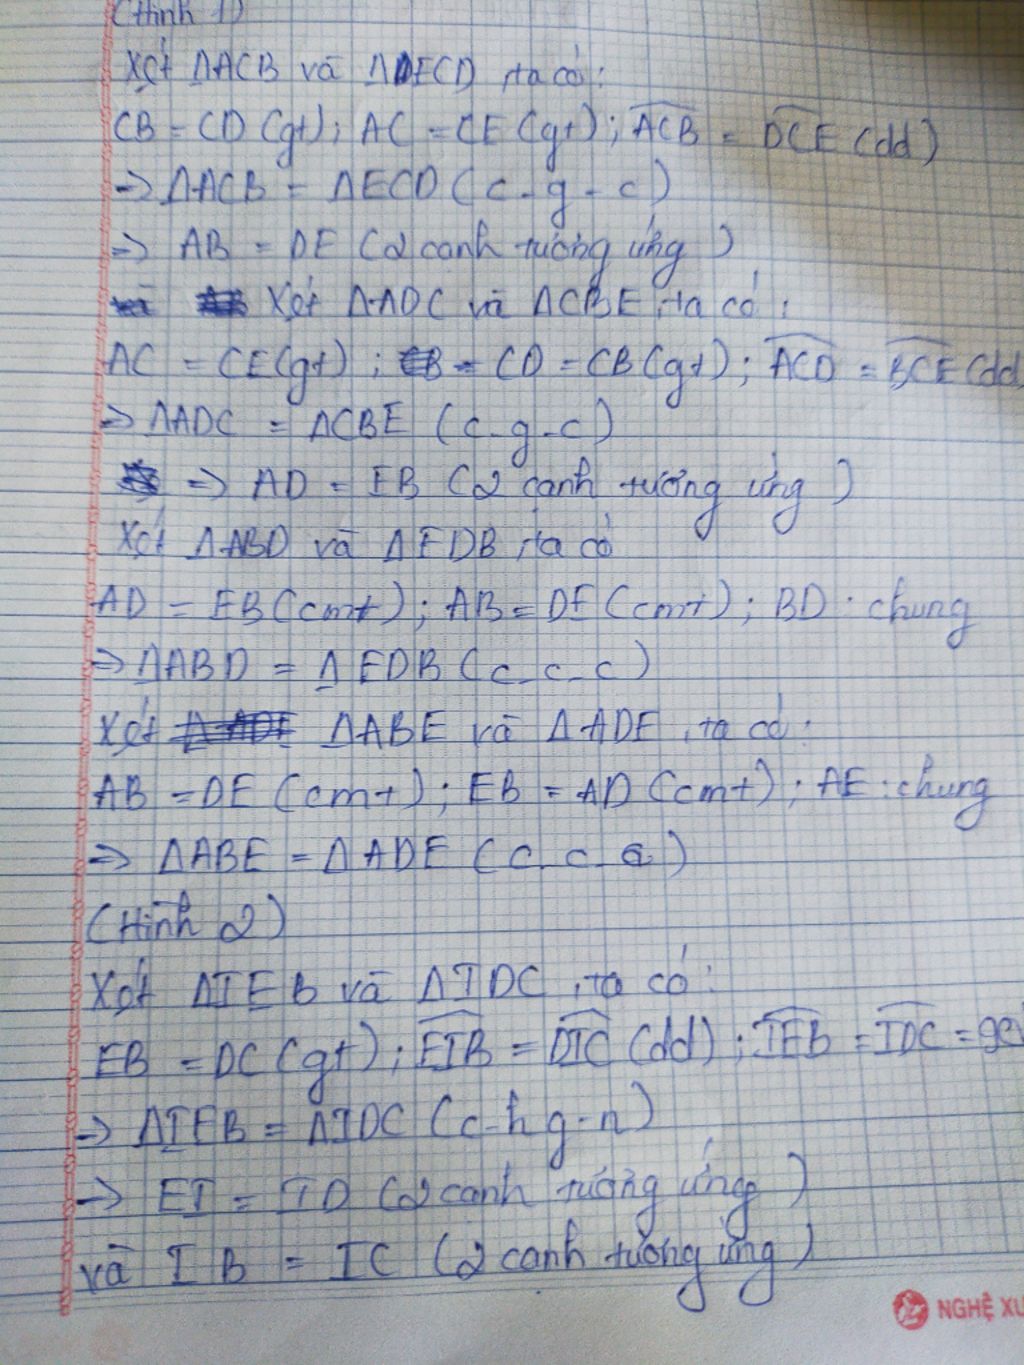 (Hình 1)
Xét ΔACB và ΔECD, ta có:
CB = CD (gt); AC = CE (gt); ACB = DCE (dd)
=> ΔACB = ΔECD (c-g-c)
=> AB = DE (2 cạnh tương ứng)
Xét ΔADC và ΔCBE, ta có:
AC = CE (gt); CD = CB (gt); ACD = BCE (dd
=> ΔADC = ΔCBE (c-g-c)
=> AD = EB (2 cạnh tương ứng)
Xét ΔABD và ΔEDB, ta có
AD = EB (cmt); AB = DE (cmt); BD: chung
=> ΔABD = ΔEDB (c-c-c)
Xét ΔABE và ΔADE, ta có:
AB = DE (cmt); EB = AD (cmt); AE: chung
=> ΔABE = ΔADE (c-c-c)
(Hình 2)
Xét ΔIEB và ΔIDC, ta có:
EB = DC (gt); EIB = DIC (dd); IEB = IDC =
=> ΔIEB = ΔIDC (c-h g-n)
=> EI = ID (2 cạnh tương ứng)
và IB = IC (2 cạnh tương ứng)
NGHỆ